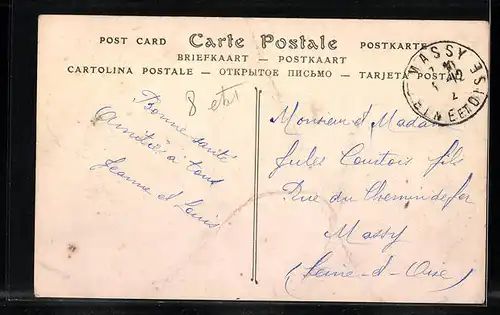 POST CARD Carte Postale POSTKARTE
BRIEFKAART — POSTKAART
CARTOLINA POSTALE — ОТКРЫТОЕ ПИСЬМО — TARJETA POSTAL
MASSY
SEINE ET OISE
8 ebt
Bonne santé
Amitiés à tous
Jeanne et Louis
Monsieur et Madame
Jules Courtois fils
Rue du Chemin de fer
Massy
(Seine-et-Oise)